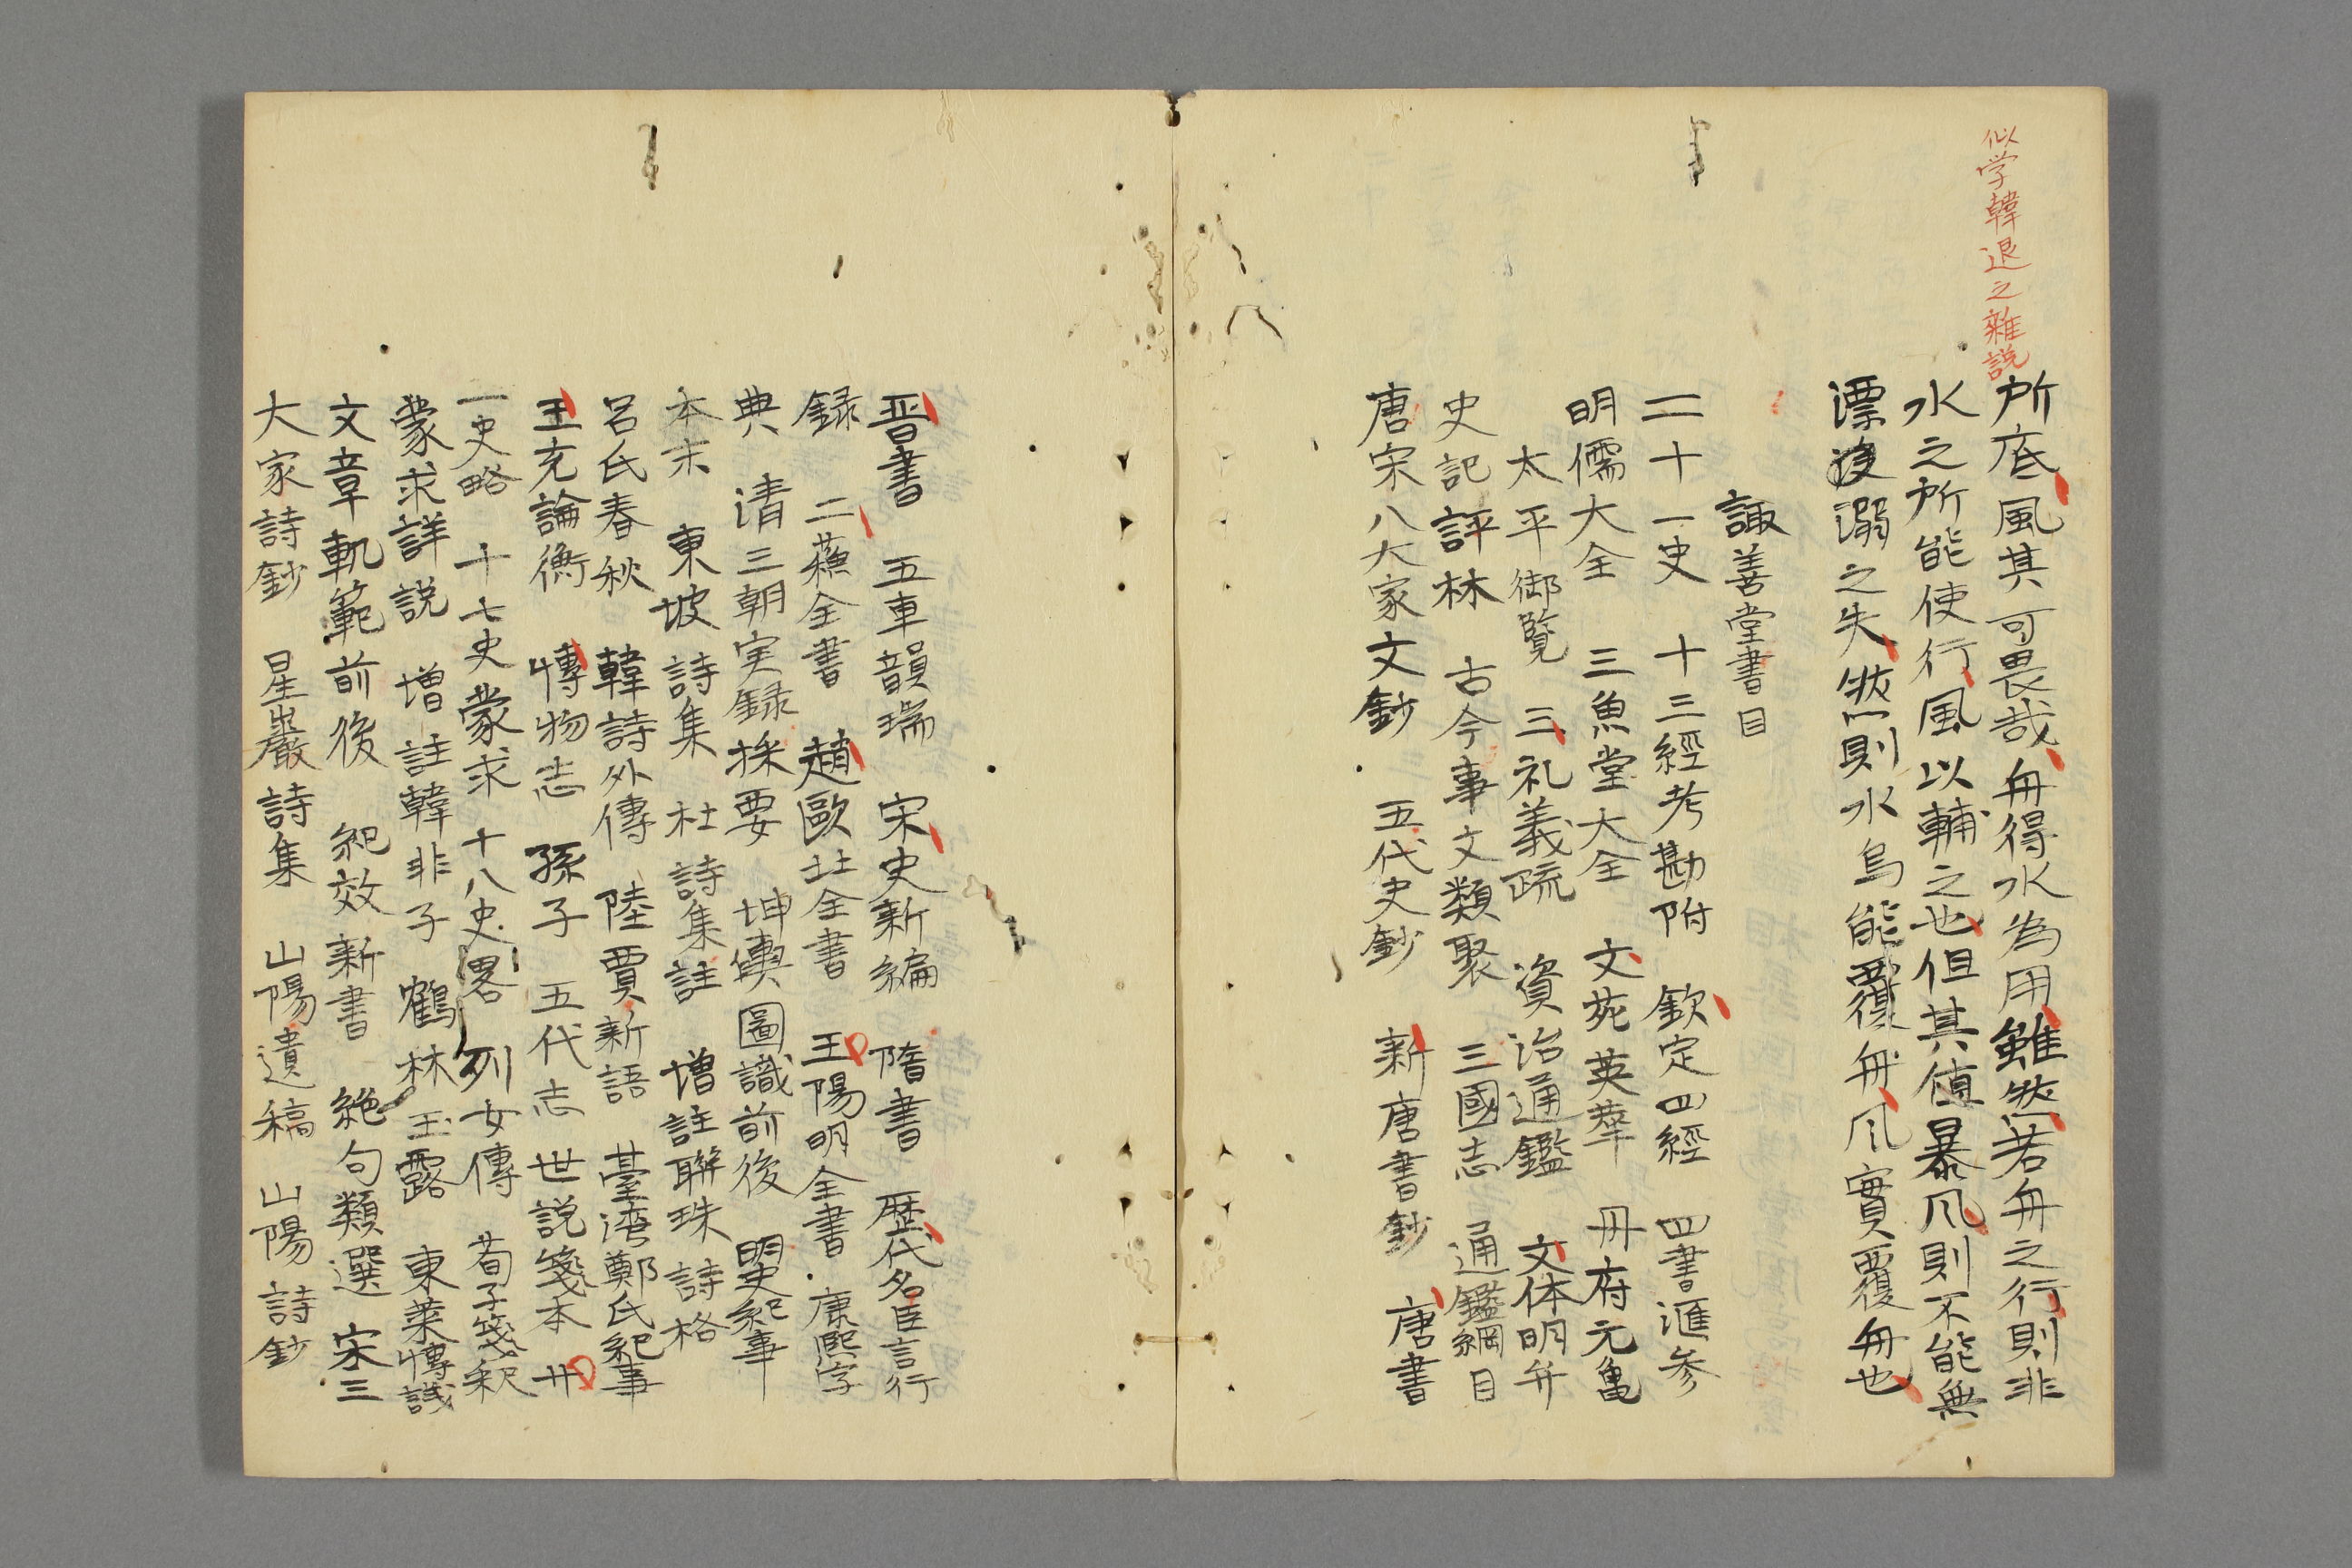 似学韓退之雜説
所底風其可畏哉舟得水為用雖然若舟之行則非
水之所能使行風以輔之也但其値暴風則不能無
漂没溺之失然則水烏能覆舟風實覆舟也
諏善堂書目
二十一史 十三經考勘附 欽定四經 四書滙参
明儒大全 三魚堂大全 文苑英華 冊府元亀
太平御覧 三礼義疏 資治通鑑 文体明弁
史記評林 古今事文類聚 三國志 通鑑綱目
唐宋八大家文鈔 五代史鈔 新唐書鈔 唐書
晋書 五車韻瑞 宋史新編 隋書 歴代名臣言行
録 二蘓全書 趙歐北全書 王陽明全書 康熙字
典 清三朝実録採要 坤輿圖識前後 明史紀事
本末 東坡詩集 杜詩集註 増註聯珠詩格
呂氏春秋 韓詩外傳 陸賈新語 臺湾鄭氏紀事
王充論衡 博物志 孫子 五代志 世説箋本 廿
一史略 十七史蒙求 十八史畧 列女傳 荀子箋釈
蒙求詳説 増註韓非子 鶴林玉露 東莱博議
文章軌範前後 紀效新書 絶句類選 宋三
大家詩鈔 星巌詩集 山陽遺稿 山陽詩鈔